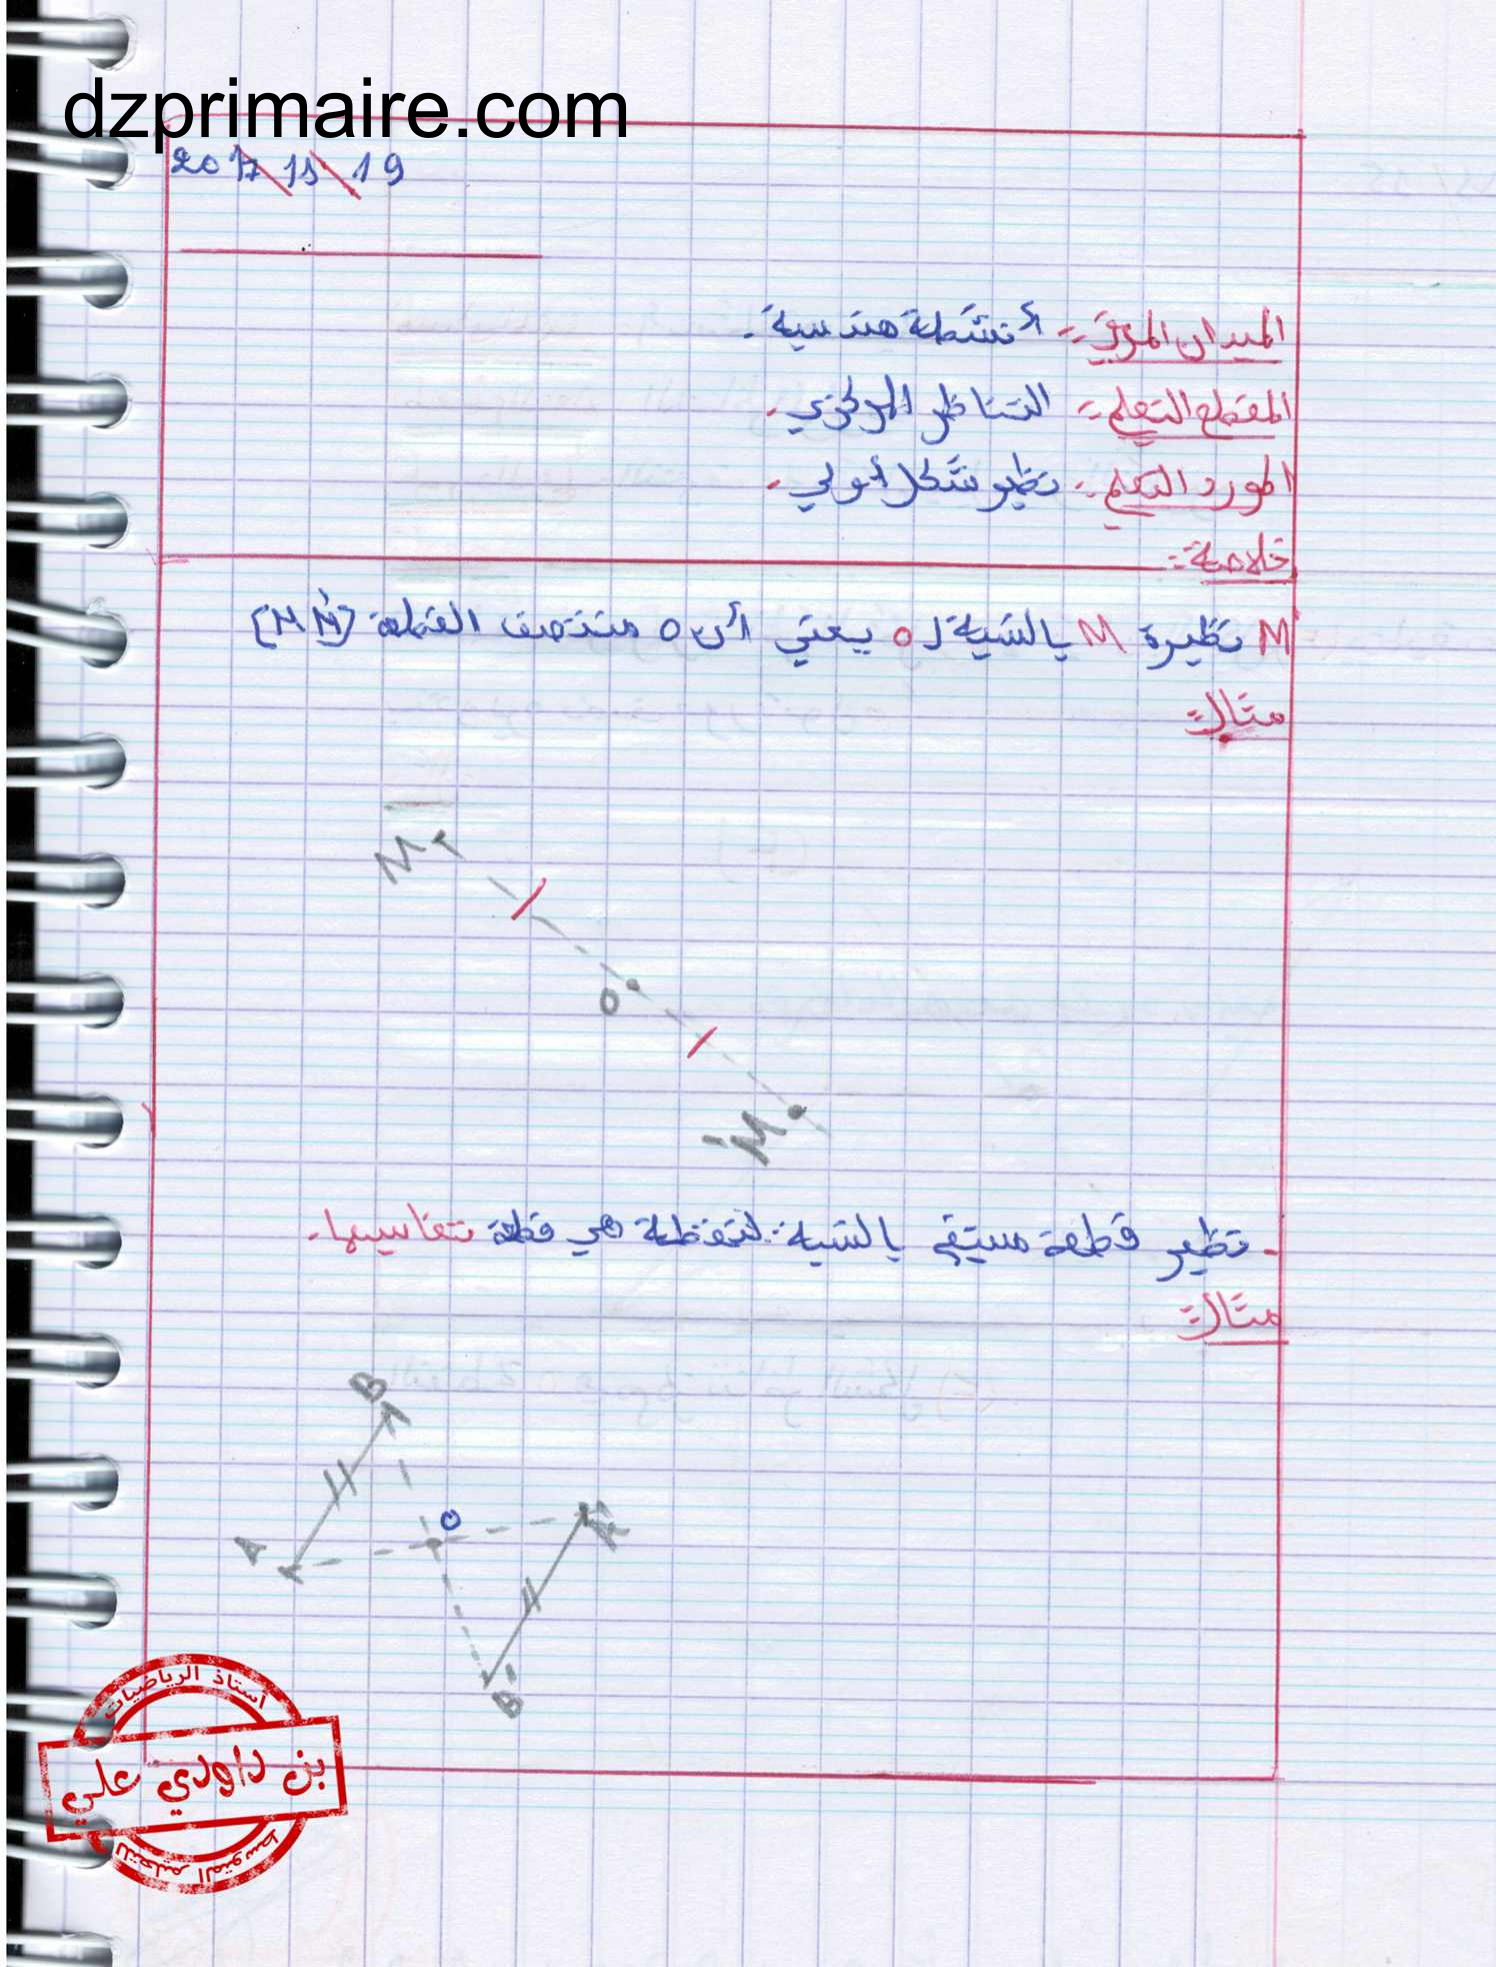 dzprimaire.com
2017\11\19
الميدان المعرفي :- أنشطة هندسية.
المقطع التعلمي :- التناظر المركزي.
المورد التعلمي :- نظير شكل أولي.
خلاصة :-
M نظيرة M بالنسبة لـ O يعني أن O منتصف القطعة [MM']
مثال :-
M
O
M'
- نظير قطعة مستقيم بالنسبة لنقطة هي قطعة تقايسها.
مثال :-
B
A O A'
B'
أستاذ الرياضيات
بن داودي علي
للتعليم المتوسط